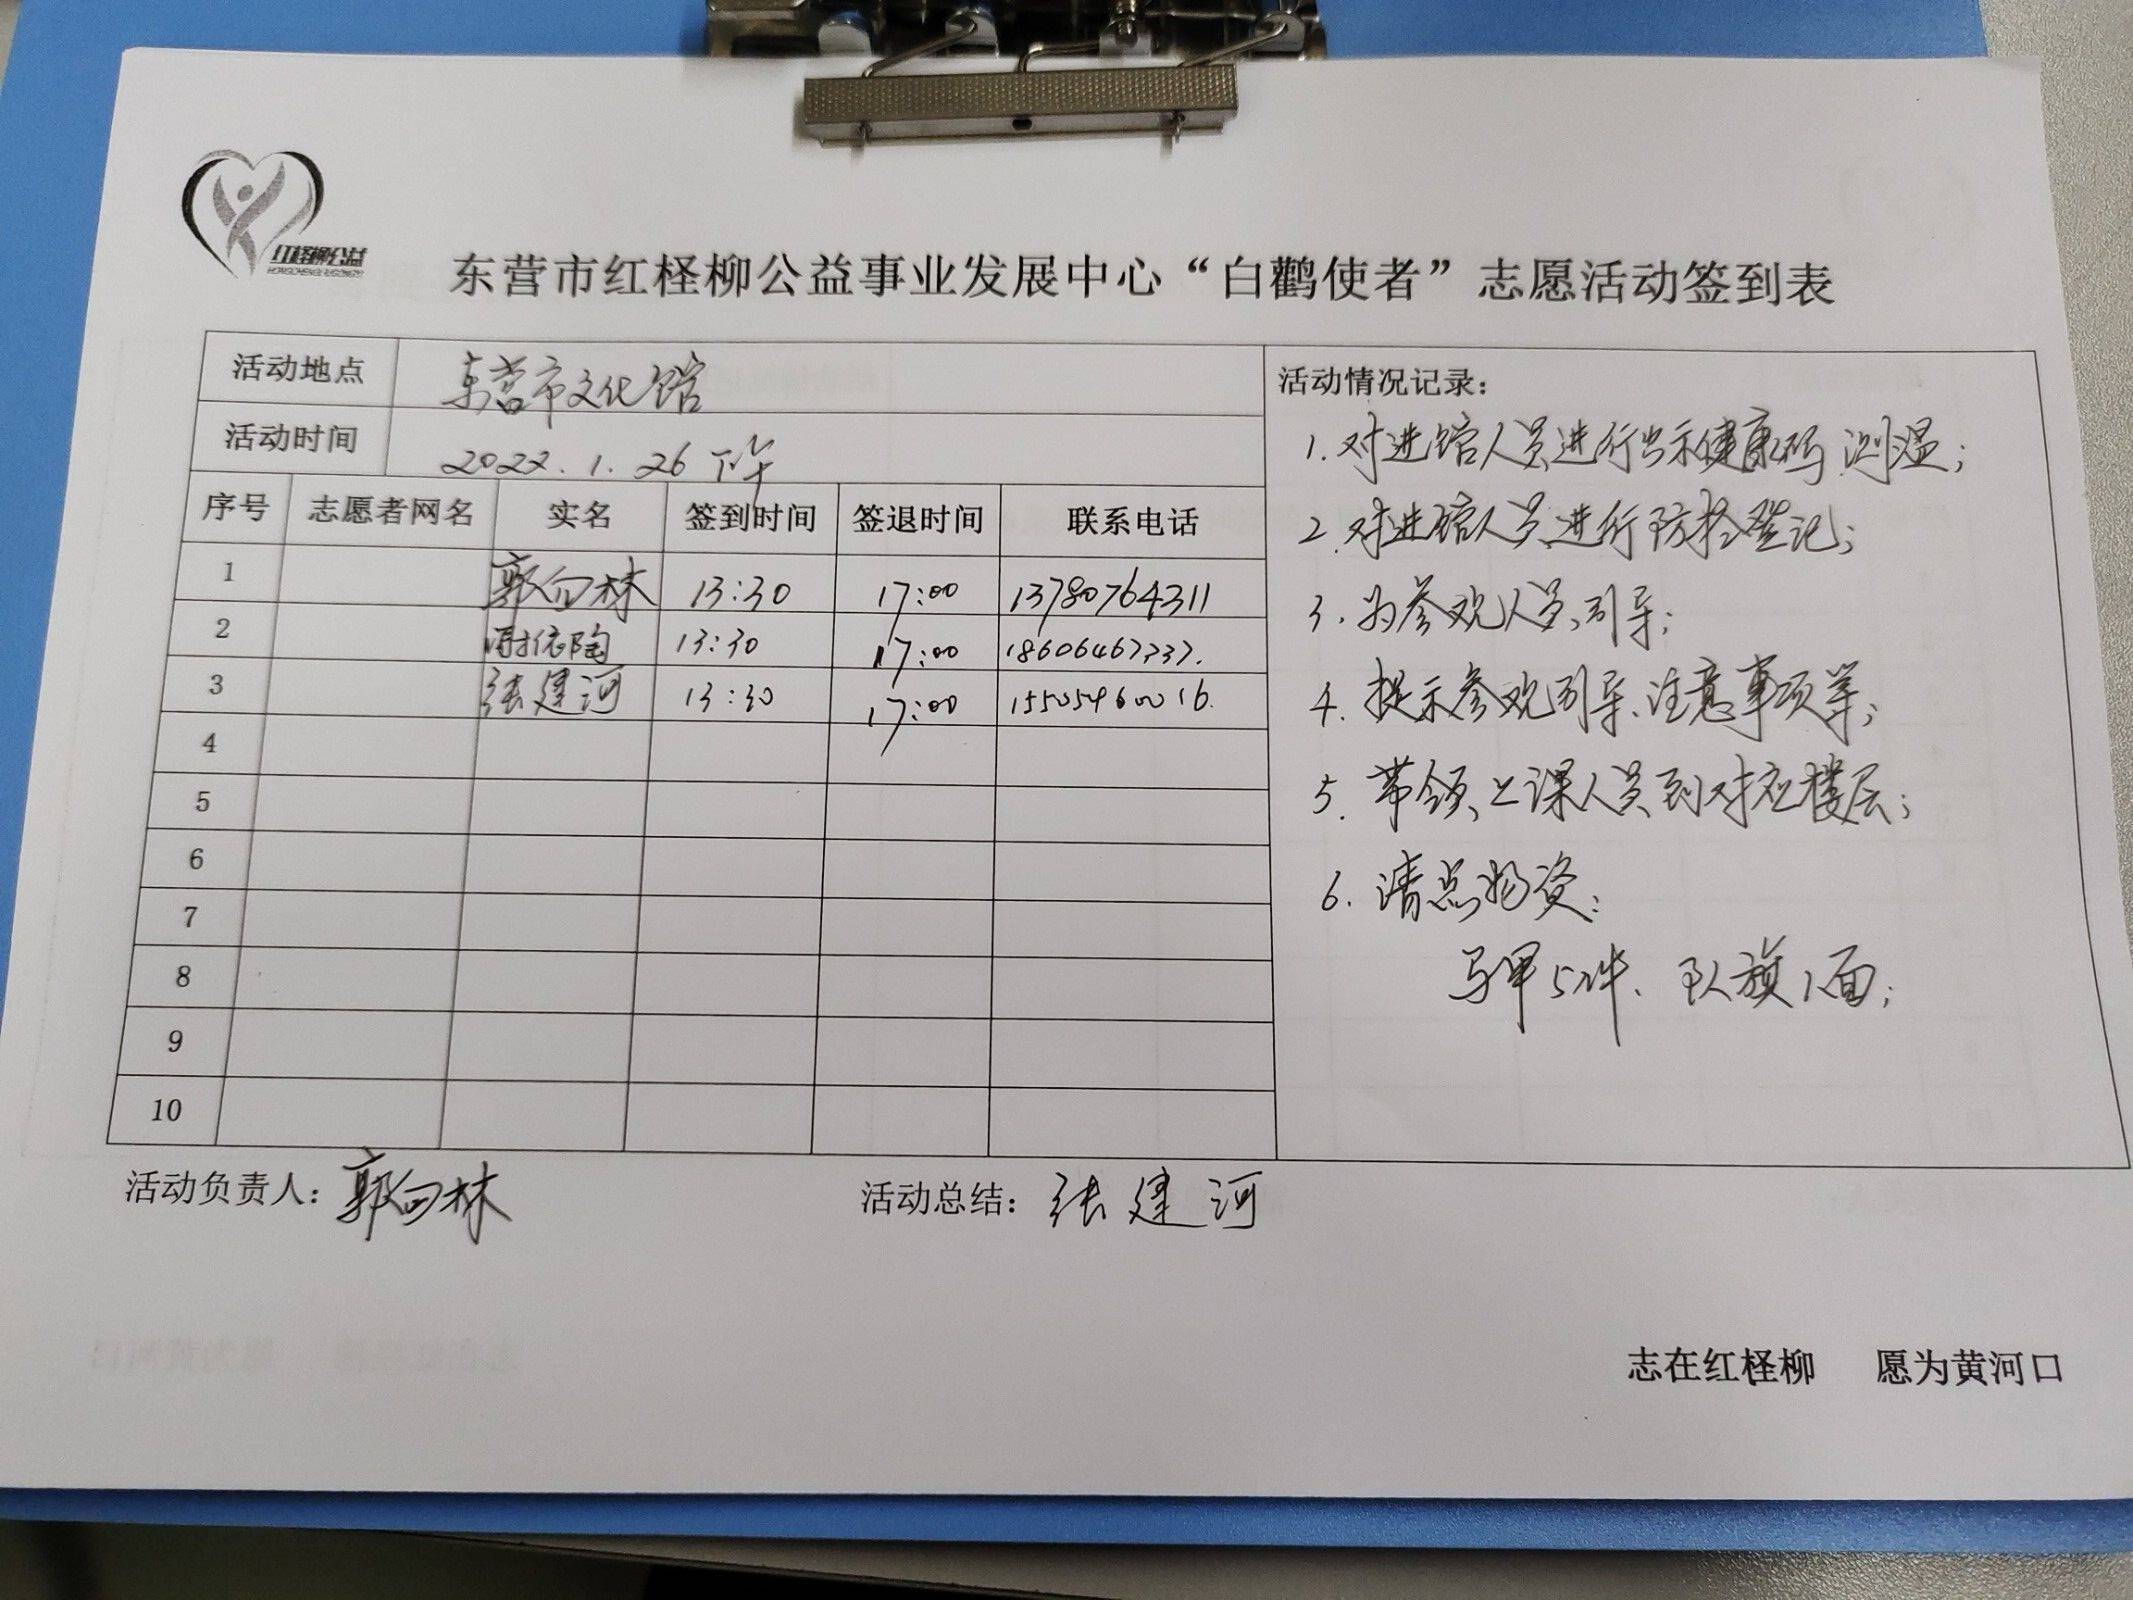 红柽柳公益
东营市红柽柳公益事业发展中心“白鹳使者”志愿活动签到表
活动地点 东营市文化馆
活动时间 2022.1.26下午
序号 志愿者网名 实名 签到时间 签退时间 联系电话
1 郭向林 13:30 17:00 13780764311
2 谢依陶 13:30 17:00
3 张建河 13:30 17:00 15505460016.
4
5
6
7
8
9
10
活动情况记录：
1.对进馆人员进行出示健康码、测温；
2.对进馆人员进行防控登记；
3.为参观人员引导；
4.提示参观引导、注意事项等；
5.带领上课人员到对应楼层；
6.清点物资：
马甲5件、队旗1面；
活动负责人：郭向林 活动总结：张建河
志在红柽柳 愿为黄河口